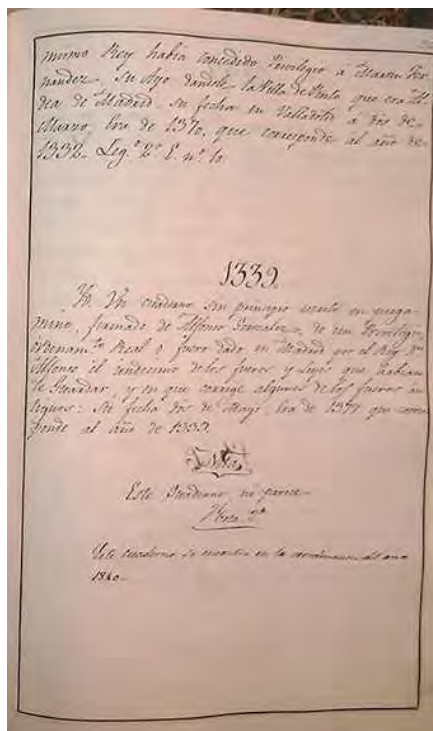 mismo Rey habia concedido Privilegio á Martin Fer-
nandez, su Ayo dandole la Villa de Pinto que era Al-
dea de Madrid. su fecha en Valladolid á dos de
Marzo, Era de 1370. que corresponde al año de
1332. Leg.º 2º E. nº 10.
1339.
Yt. Un cuaderno sin principio escrito en perga-
mino, firmado de Alfonso Gonzalez, de un Privilegio,
ordenam.to Real ó fuero dado en Madrid por el Rey Dn
Alfonso el undecimo de los fueros y Leyes que habian
de Guardar, y en que corrige algunos de los fueros an-
tiguos: Su fecha dos de Mayo, Era de 1377 que corres-
ponde al año de 1339.
Nota
Este Quaderno, no parece
Este cuaderno se encontró en la del año
1840.